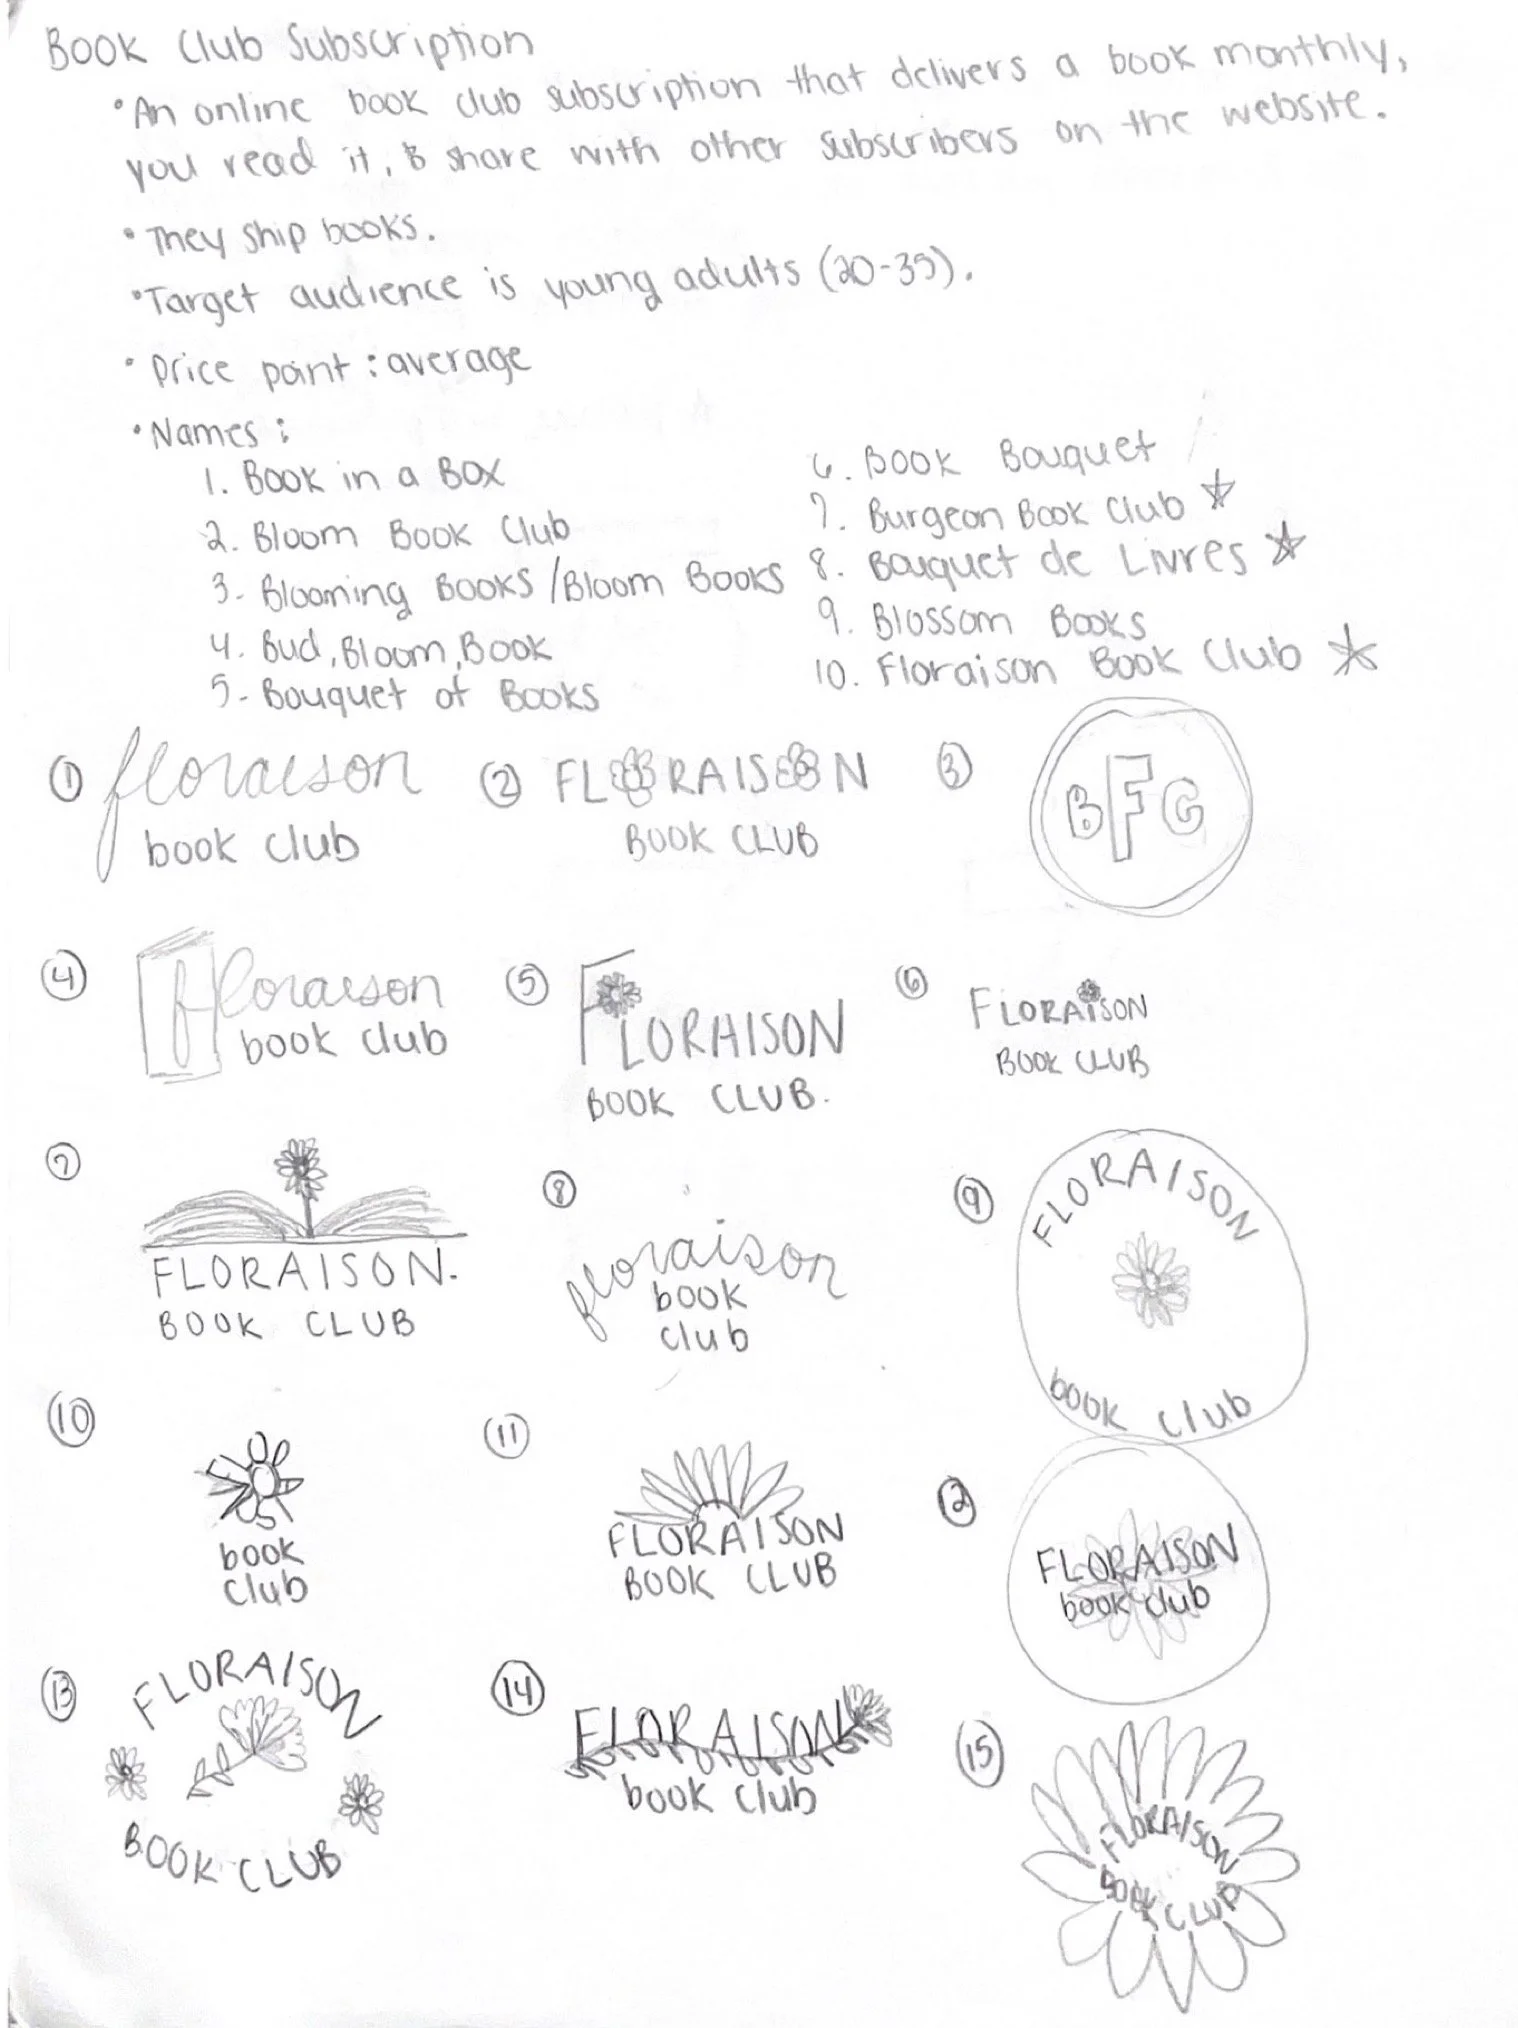 Book Club Subscription
• An online book club subscription that delivers a book monthly,
you read it, & share with other subscribers on the website.
• They ship books.
• Target audience is young adults (20-35).
• Price point : average
• Names :
1. Book in a Box
2. Bloom Book Club
3. Blooming Books / Bloom Books
4. Bud, Bloom, Book
5. Bouquet of Books
6. Book Bouquet
7. Burgeon Book Club ☆
8. Bouquet de Livres ☆
9. Blossom Books
10. Floraison Book Club ☆
① floraison
book club
② FLORAISON
BOOK CLUB
③ BFC
④ floraison
book club
⑤ FLORAISON
BOOK CLUB.
⑥ FLORAISON
BOOK CLUB
⑦ FLORAISON.
BOOK CLUB
⑧ floraison
book
club
⑨ FLORAISON
book club
⑩
book
club
⑪ FLORAISON
BOOK CLUB
⑫ FLORAISON
book club
⑬ FLORAISON
BOOK CLUB
⑭ FLORAISON
book club
⑮ FLORAISON
BOOK CLUB